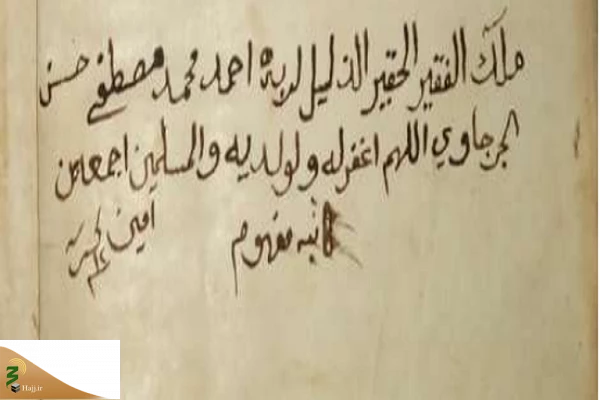 ملك الفقير الحقير الذليل لربه احمد محمد مصطفى حسن
الجرجاوي اللهم اغفر له ولولديه والمسلمين اجمعين
امين
كاتبه مفهوم
Hajj.ir